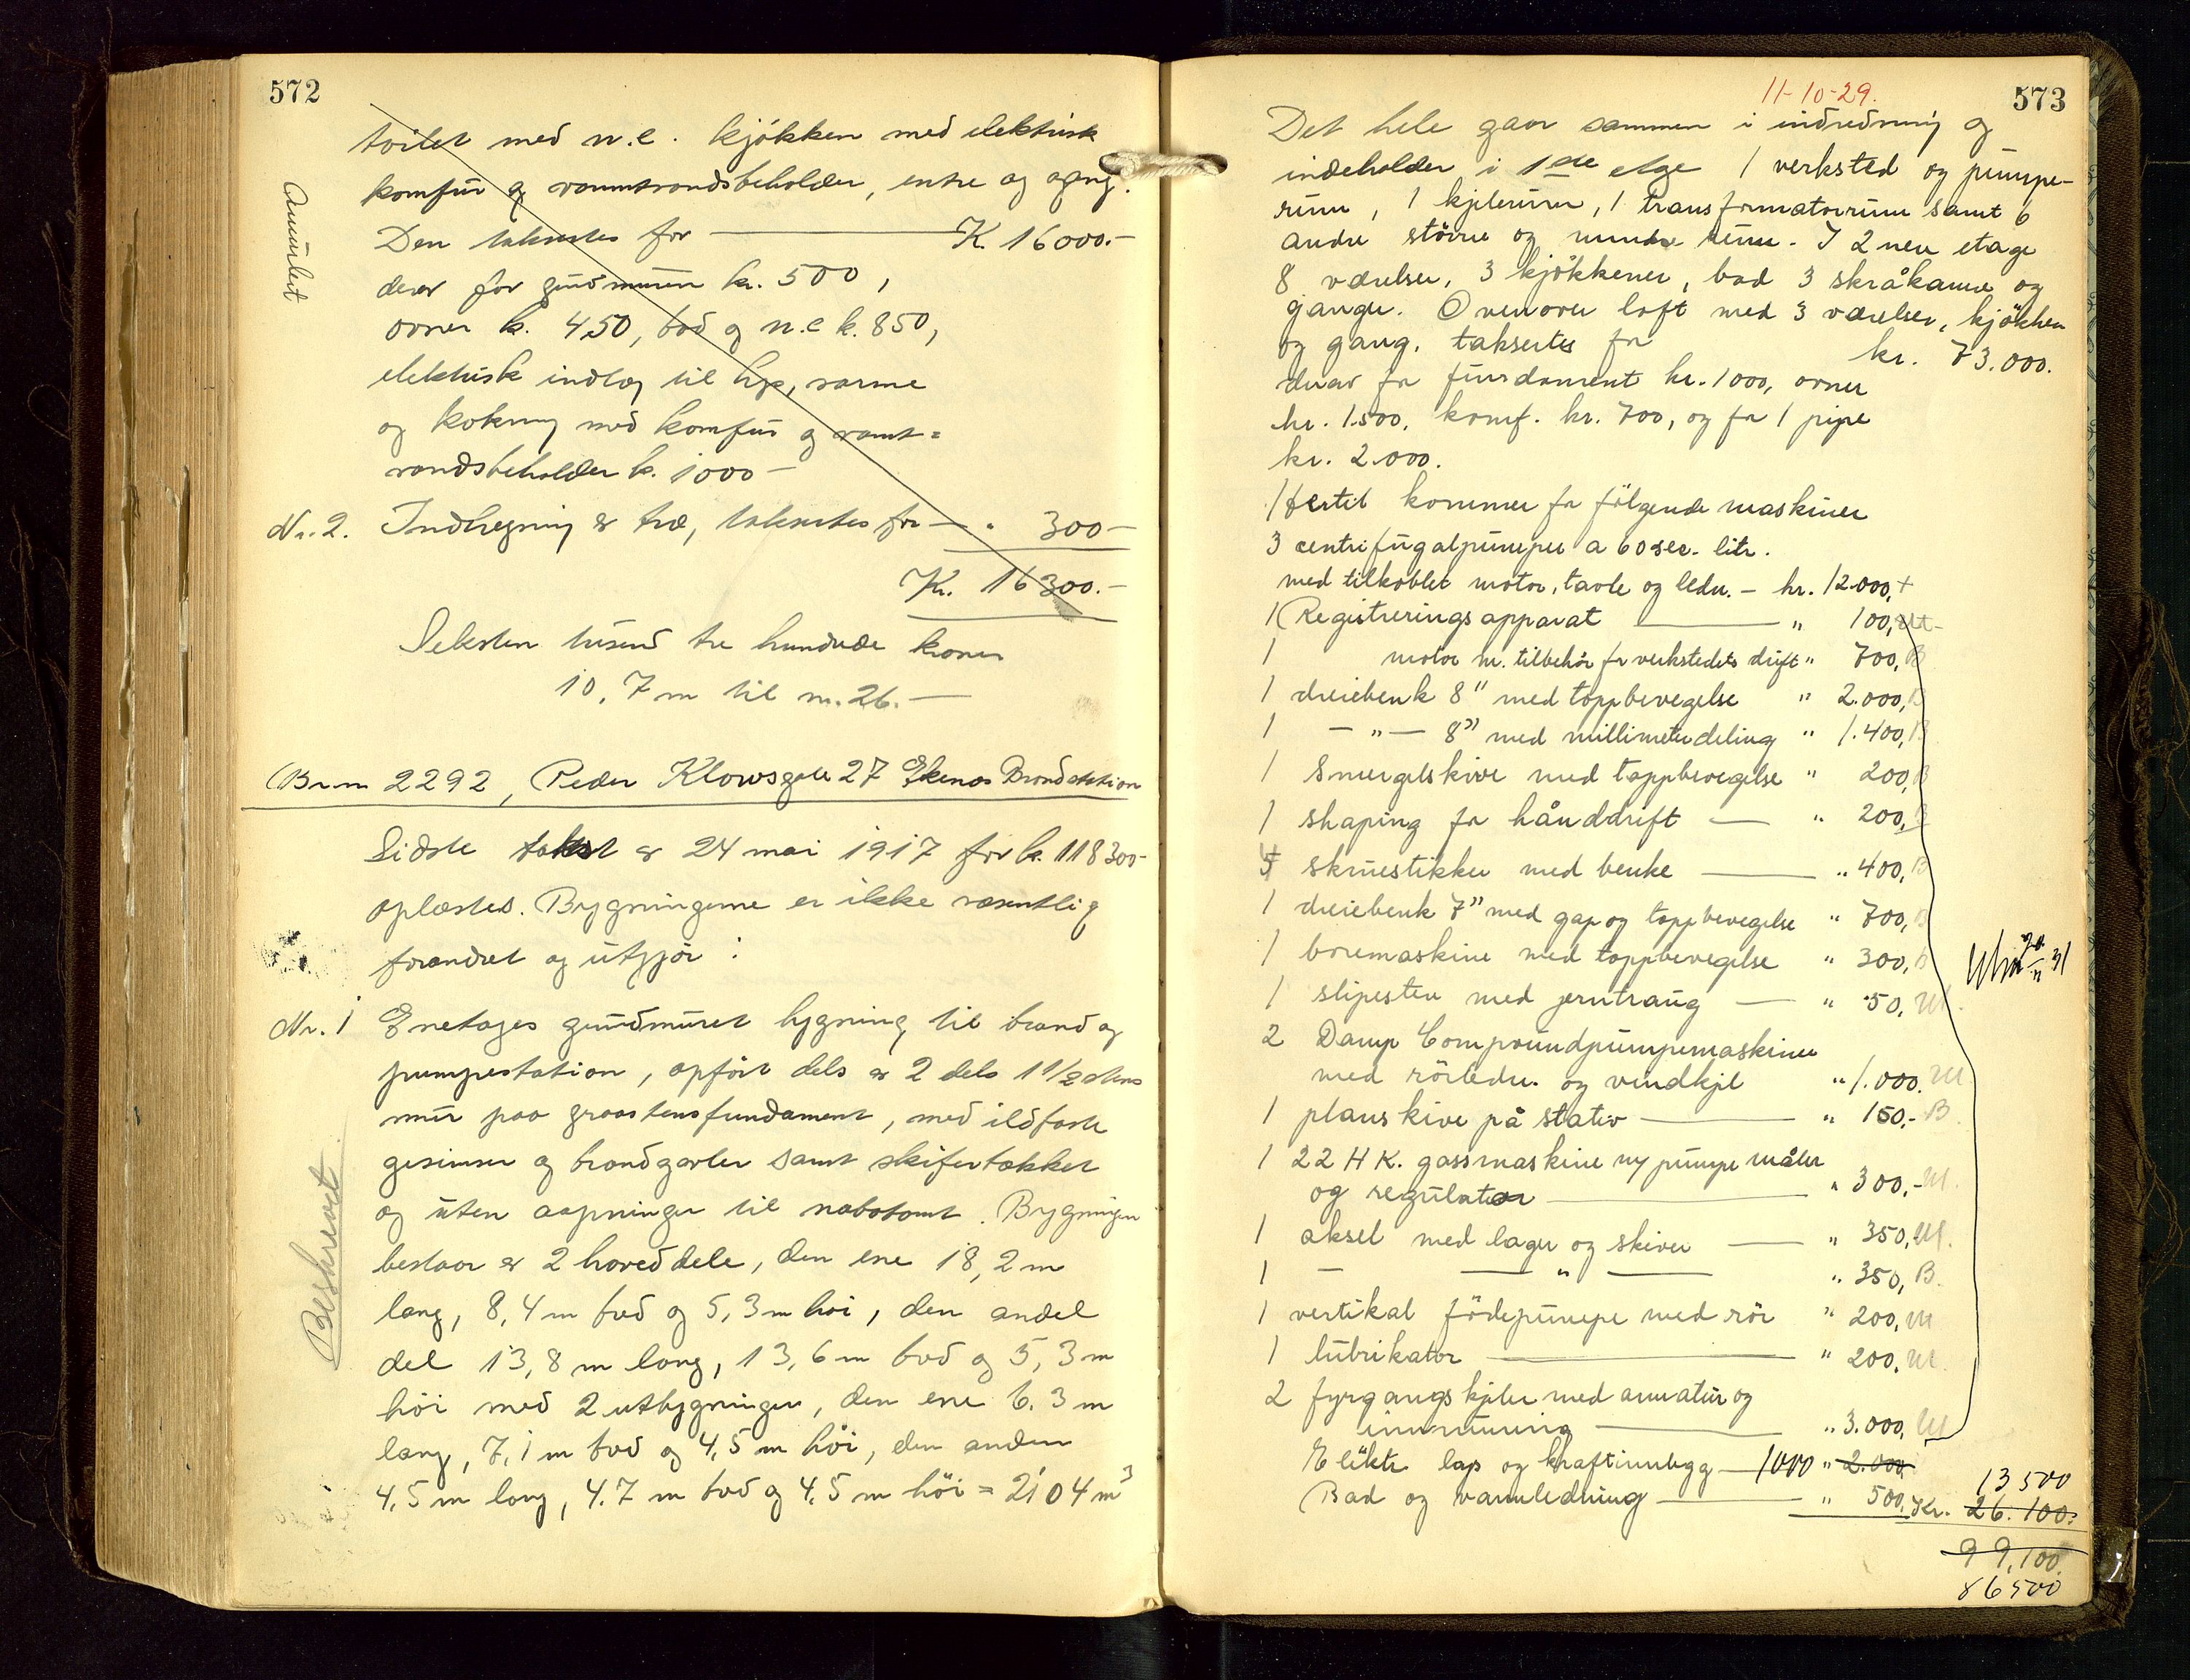 572
toilet med w.c. kjökken med elektrisk
komfur og varmtvandsbeholder, entre og gang.
Annulert
Den takseres for — K. 16000.-
derav for grundmuren kr. 500,
ovner k. 450, bad og w.c k. 850,
elektrisk indlæg til lys, varme
og kokning med komfur og varmt=
vandsbeholder k. 1000 —
Nr. 2. Indhegning av træ, takseres for — " 300 —
Kr. 16300.-
Seksten tusend tre hundrede kroner
10,7 m til nr. 26. —
Br.n 2292, Peder Klowsgate 27 Ekenæs Brandstation
Sidste takst av 24 mai 1917 for k. 118300-
oplæstes. Bygningerne er ikke væsentlig
forandret og utgjør :
Nr. 1 Enetages grundmuret bygning til brand og
pumpestation, opført dels av 2 dels 1 1/2 stens
mur paa graastensfundament, med ildfaste
gesimser og brandgavler samt skifertækket
og uten aapninger til nabotomt. Bygningen
Beskrevet
bestaar av 2 hoveddele, den ene 18,2 m
lang, 8,4 m bred og 5,3 m høi, den andel
del 13,8 m lang, 13,6 m bred og 5,3 m
høi med 2 utbygninger, den ene 6.3 m
lang, 7,1 m bred og 4,5 m høi, den anden
4,5 m lang, 4.7 m bred og 4,5 m höi = 2104 m³
11-10-29.
573
Det hele gaar sammen i indredning og
indeholder i 1ste etge 1 verksted og pumpe-
rum, 1 kjelerum, 1 transformatorrum samt 6
andre större og mindre rum. I 2nen etage
8 værelser, 3 kjökkener, bad 3 skråkamre og
ganger. Ovenover loft med 3 værelser, kjökken
og gang, taksertes for kr. 73.000.
derav for fundament kr. 1000, ovner
kr. 1.500, komf. kr. 700, og for 1 pipe
kr. 2.000.
Hertil kommer for fölgende maskiner
3 centrifugalpumper a 60 sec. litr.
med tilkoblet motor, tavle og ledn. - kr. 12.000,+
1 Registreringsapparat — " 100, Ut-
1 motor m. tilbehör for verkstedets drift " 700, B
1 dreiebenk 8" med toppbevegelse " 2.000, B
1 - " - 8" med millimeterdeling " 1.400, B
1 Smergelskive med toppbevegelse " 200, B
1 shaping for hånddrift — " 200, B
4 skruestikker med benke — " 400, B
1 dreiebenk 7" med gap og toppbevegelse " 700, B
1 boremaskine med toppbevegelse " 300, B
1 slipesten med jerntraug — " 50, Ut.
2 Damp Compoundpumpemaskiner
med rörledn. og vindkjel " 1.000. Ut
1 planskive på stativ — " 150,- B
1 22 H K. gassmaskine m/ pumpe måler
og regulator — " 300,- Ut.
1 aksel med lager og skiver — " 350, Ut.
1 — — " — " 350, B.
1 vertikal födepumpe med rör " 200, Ut
1 lubrikator — " 200, Ut.
2 fyrgangskjeler med armatur og
innmuring — " 3.000, Ut
Elektr. lys og kraftinnlegg — 1000 " 2.000,
13500
Bad og vannledning — " 500, Kr. 26.100.
99,100
86500